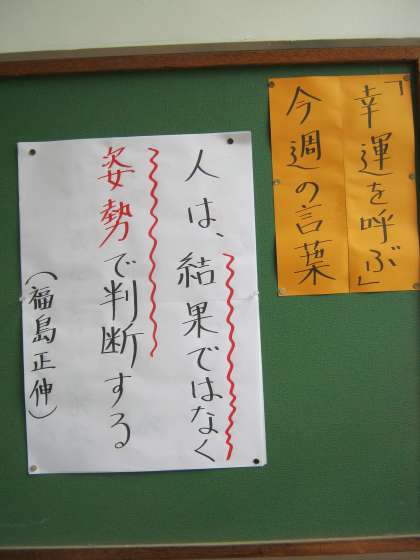 「幸運を呼ぶ」
今週の言葉
人は、結果ではなく
姿勢で判断する
(福島正伸)